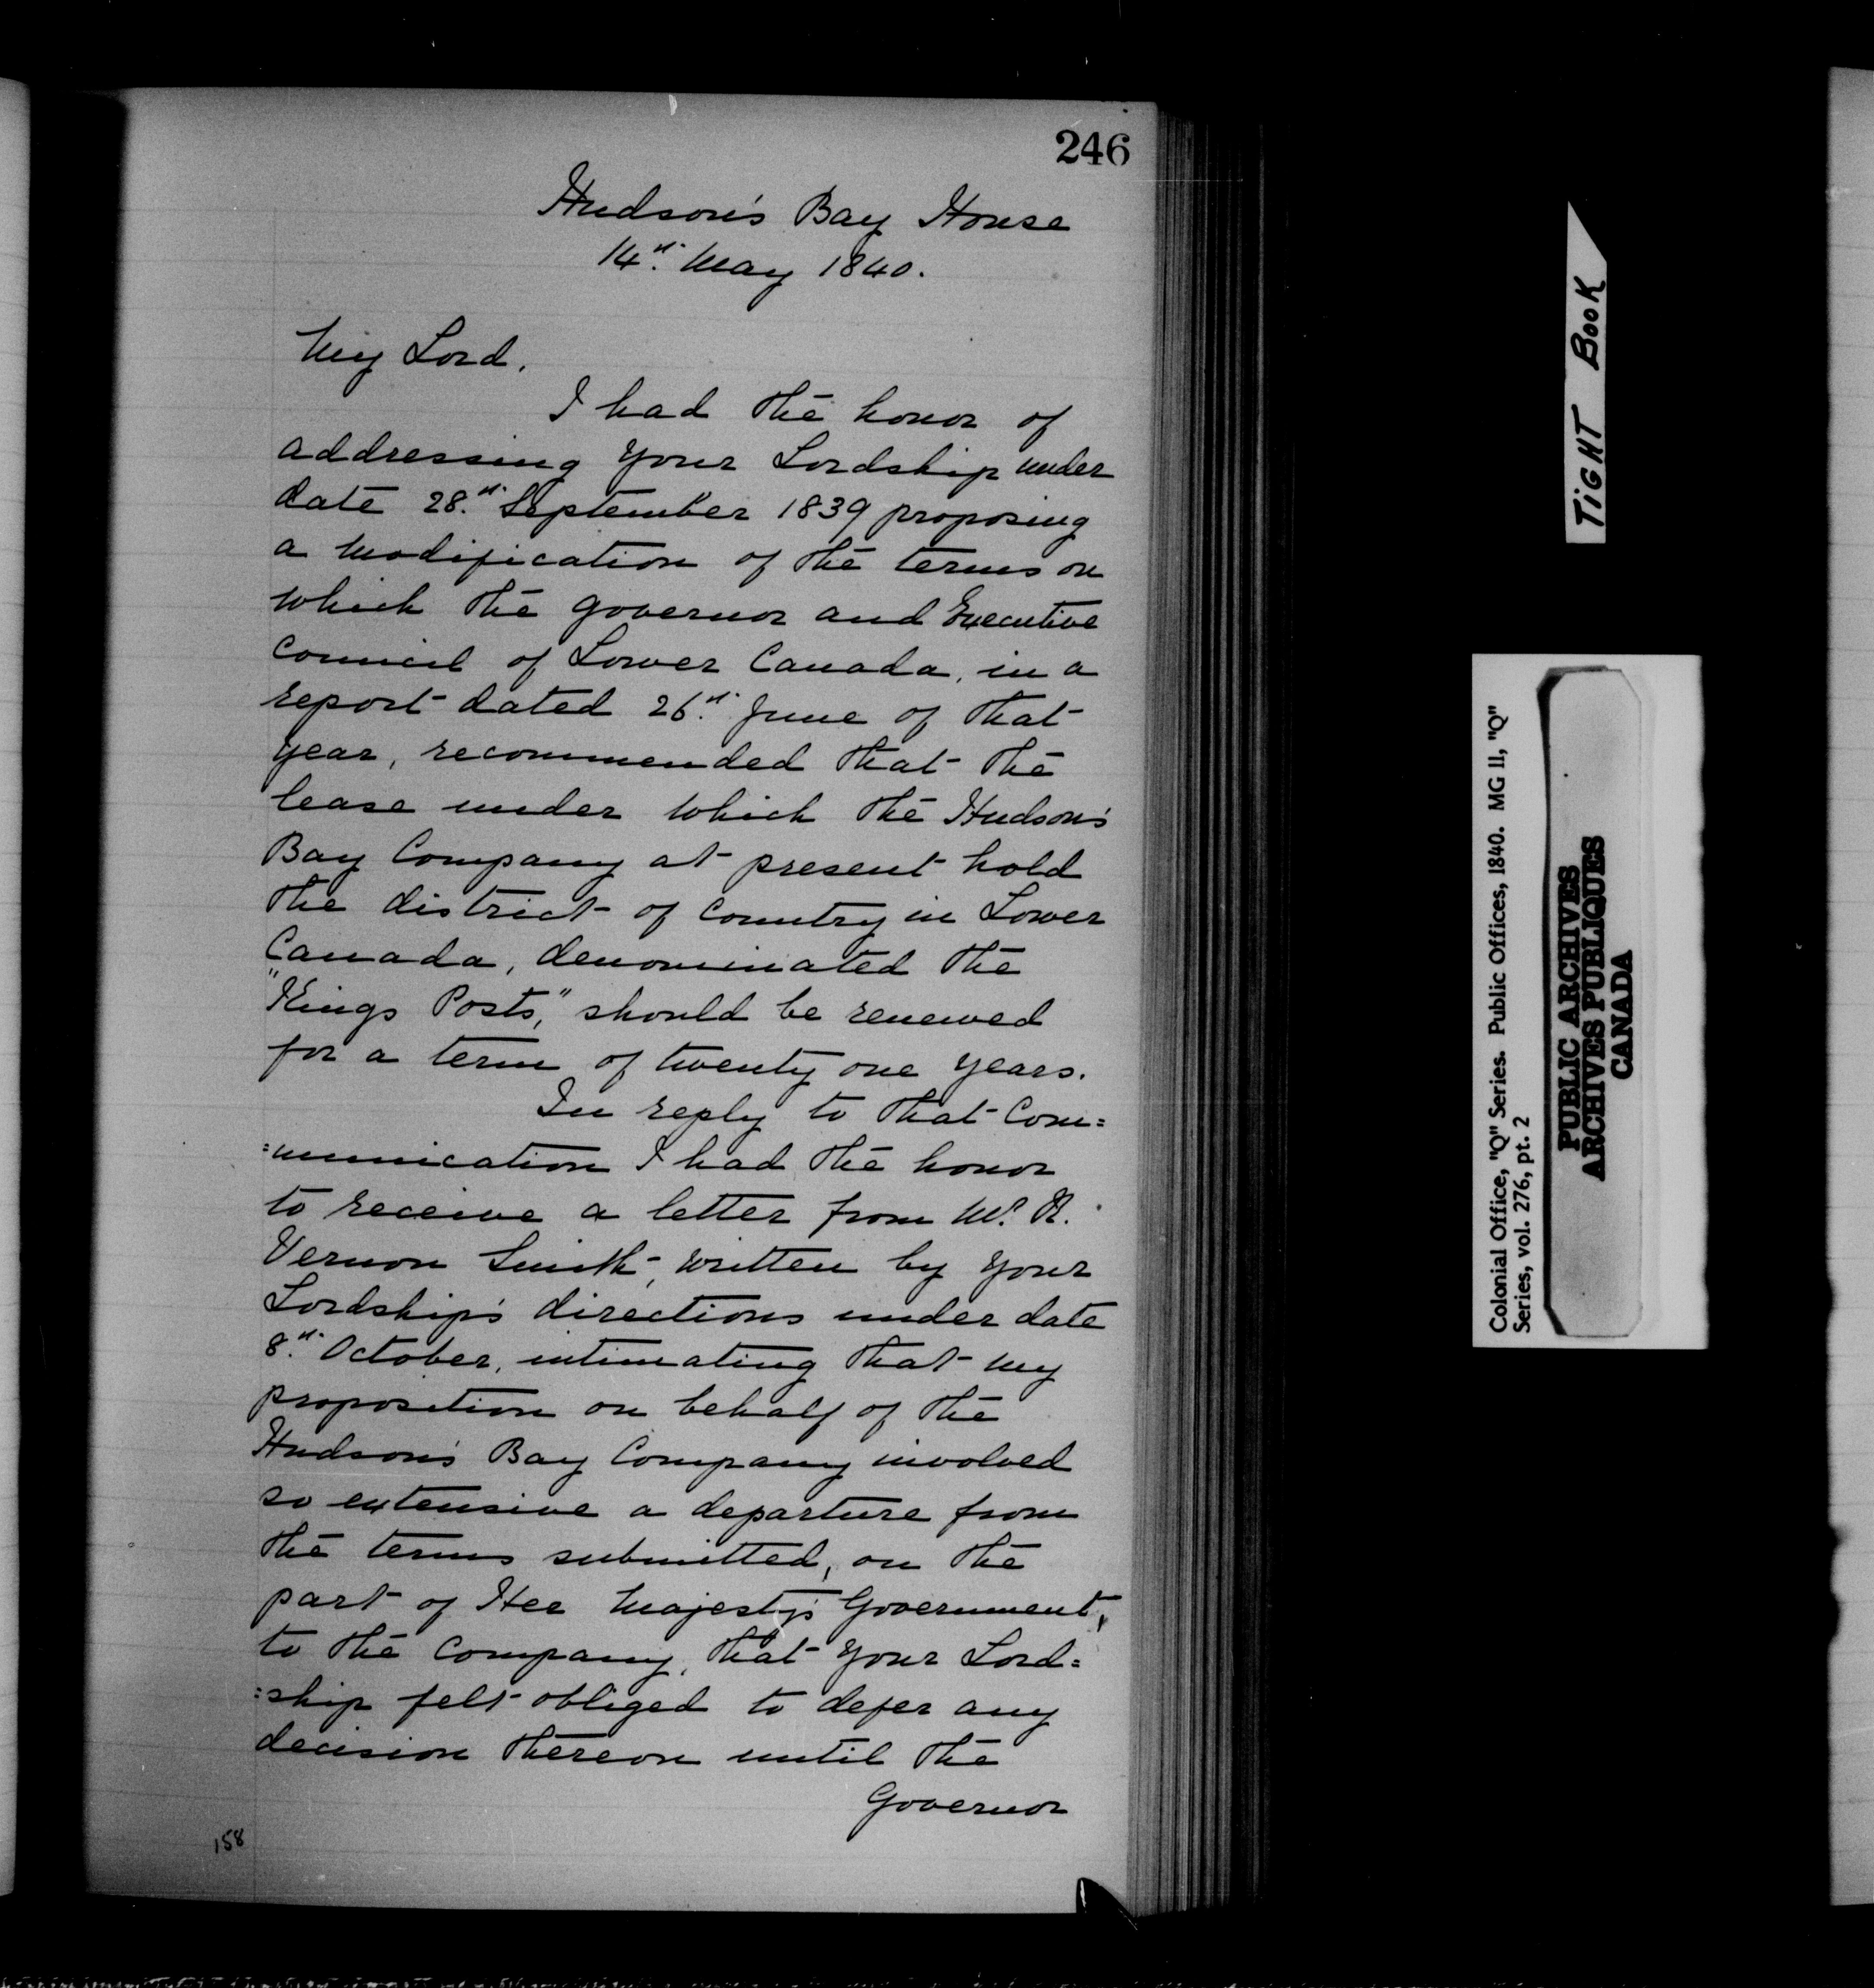 246
Hudson's Bay House
14th May 1840.
My Lord,
I had the honor of
addressing your Lordship under
date 28th September 1839 proposing
a modification of the terms on
which the Governor and Executive
Council of Lower Canada, in a
report dated 26th June of that
year, recommended that the
lease under which the Hudson's
Bay Company at present hold
the district of Country in Lower
Canada, denominated the
"Kings Posts," should be renewed
for a term of twenty one years.
In reply to that Com=
=munication I had the honor
to receive a letter from Mr. R.
Vernon Smith, written by your
Lordship's directions under date
8th October, intimating that my
proposition on behalf of the
Hudson's Bay Company involved
so extensive a departure from
the terms submitted, on the
part of Her Majesty's Government,
to the Company, that your Lord=
=ship felt obliged to defer any
decision thereon until the
Governor
158
TIGHT BOOK
Colonial Office, "Q" Series. Public Offices, 1840. MG 11, "Q"
Series, vol. 276, pt. 2
PUBLIC ARCHIVES
ARCHIVES PUBLIQUES
CANADA